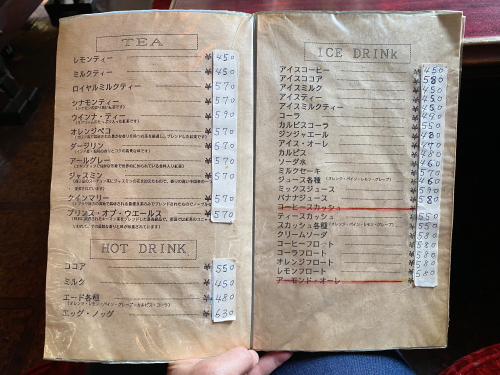 TEA
レモンティー ¥450
ミルクティー ¥450
ロイヤルミルクティー ¥570
シナモンティー ¥570
ウインナ・ティー ¥570
オレンジペコ ¥570
ダージリン ¥570
アールグレー ¥570
ジャスミン ¥570
クインマリー ¥570
プリンス・オブ・ウエールス ¥570
HOT DRINK
ココア ¥550
ミルク ¥450
エード各種 ¥480
(オレンジ・レモン・パイン・グレープ・カルピス・コーラ)
エッグ・ノッグ ¥630
ICE DRINK
アイスコーヒー ¥450
アイスココア ¥580
アイスミルク ¥450
アイスティー ¥450
アイスミルクティー ¥450
コーラ
カルピスコーラ ¥550
ジンジャエール ¥480
アイス・オーレ
カルピス ¥480
ソーダ水 ¥460
ミルクセーキ ¥570
ジュース各種(オレンジ・パイン・レモン・グレープ)
ミックスジュース
バナナジュース ¥580
コーヒースカッシュ
ティースカッシュ ¥550
スカッシュ各種(オレンジ・レモン・パイン・グレープ) ¥550
クリームソーダ ¥580
コーヒーフロート ¥580
コーラフロート ¥580
オレンジフロート ¥580
レモンフロート ¥580
アーモンド・オーレ